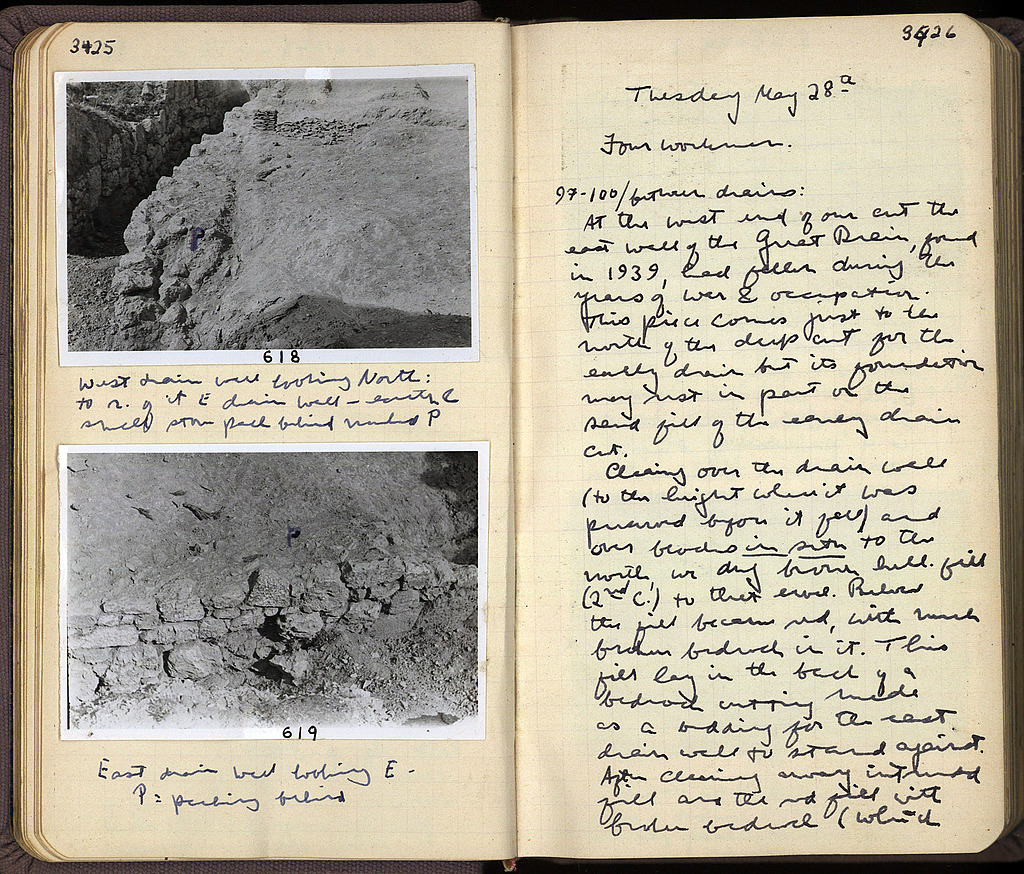 3425
P
618
West drain wall looking North:
to r. of it E drain wall – earth &
small stone pack behind marked P
P
619
East drain wall looking E –
P = packing behind
3426
Tuesday May 28
Four workmen.
97-100/between drains:
At the west end of our cut the
east wall of the Great Drain, found
in 1939, had fallen during the
years of war & occupation.
This piece comes just to the
north of the deep cut for the
early drain but its foundation
may rest in part on the
sand fill of the early drain
cut.
Clearing over the drain wall
(to the height where it was
preserved before it fell) and
over blocks in situ to the
north, we dug brown hell. fill
(2nd C.) to that level. Behind
the fill became red, with much
broken bedrock in it. This
fill lay in the back of a
bedrock cutting made
as a bedding for the east
drain wall to stand against.
After clearing away
fill and the red fill with
broken bedrock (which